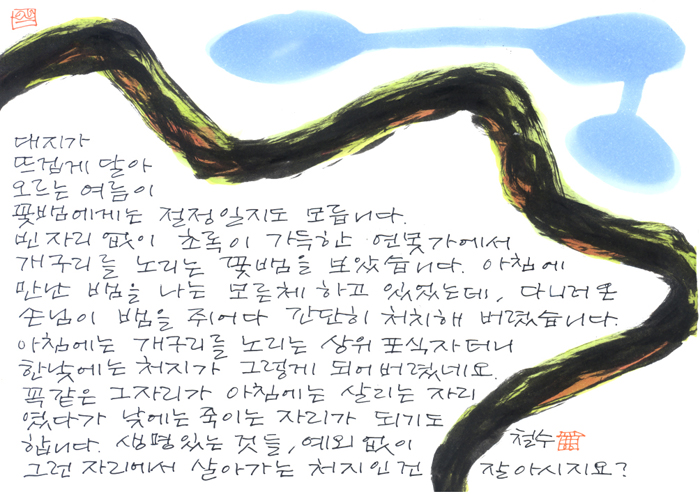 대지가
뜨겁게 달아
오르는 여름이
꽃뱀에게는 절정일지도 모릅니다.
빈자리 없이 초록이 가득한 연못가에서
개구리를 노리는 꽃뱀을 보았습니다. 아침에
만난 뱀을 나는 모른체 하고 있었는데, 다니러온
손님이 뱀을 쥐어다 간단히 처치해 버렸습니다.
아침에는 개구리를 노리는 상위 포식자더니
한낮에는 처지가 그렇게 되어버렸네요.
꼭 같은 그자리가 아침에는 살리는 자리
였다가 낮에는 죽이는 자리가 되기도
합니다. 생명있는 것들, 예외 없이
그런 자리에서 살아가는 처지인건 잘아시지요?
철수